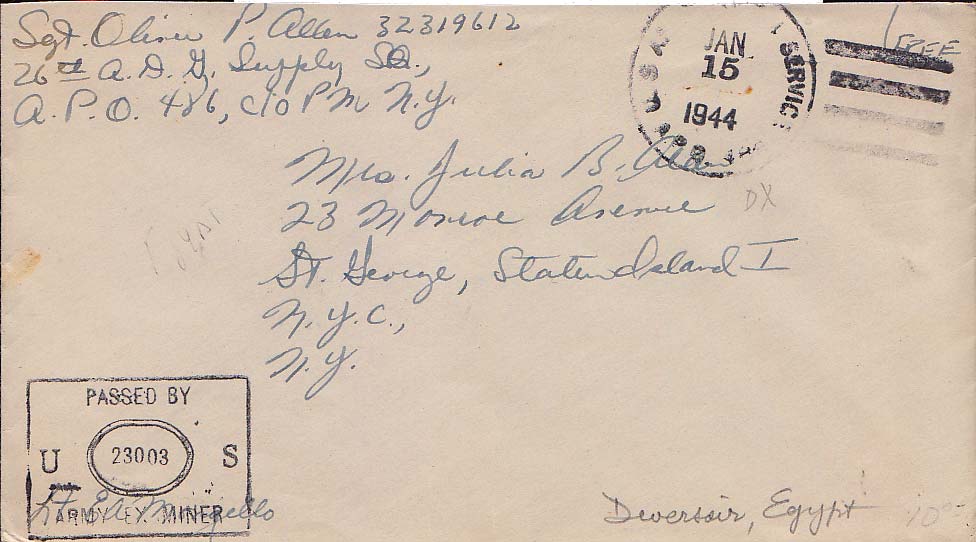 Sgt. Oliver P. Allen 32319612
FREE
26th A. D. G. Supply SQ.,
A. P. O. 486, c/o PM N.Y.
JAN
15
1944
SERVICE
Mrs. Julia B. Allen
23 Monroe Avenue
DX
St. George, Staten Island I
N.Y.C.,
N.Y.
PASSED BY
U 23003 S
ARMY EXAMINER
Lt. E.A.
Deversoir, Egypt